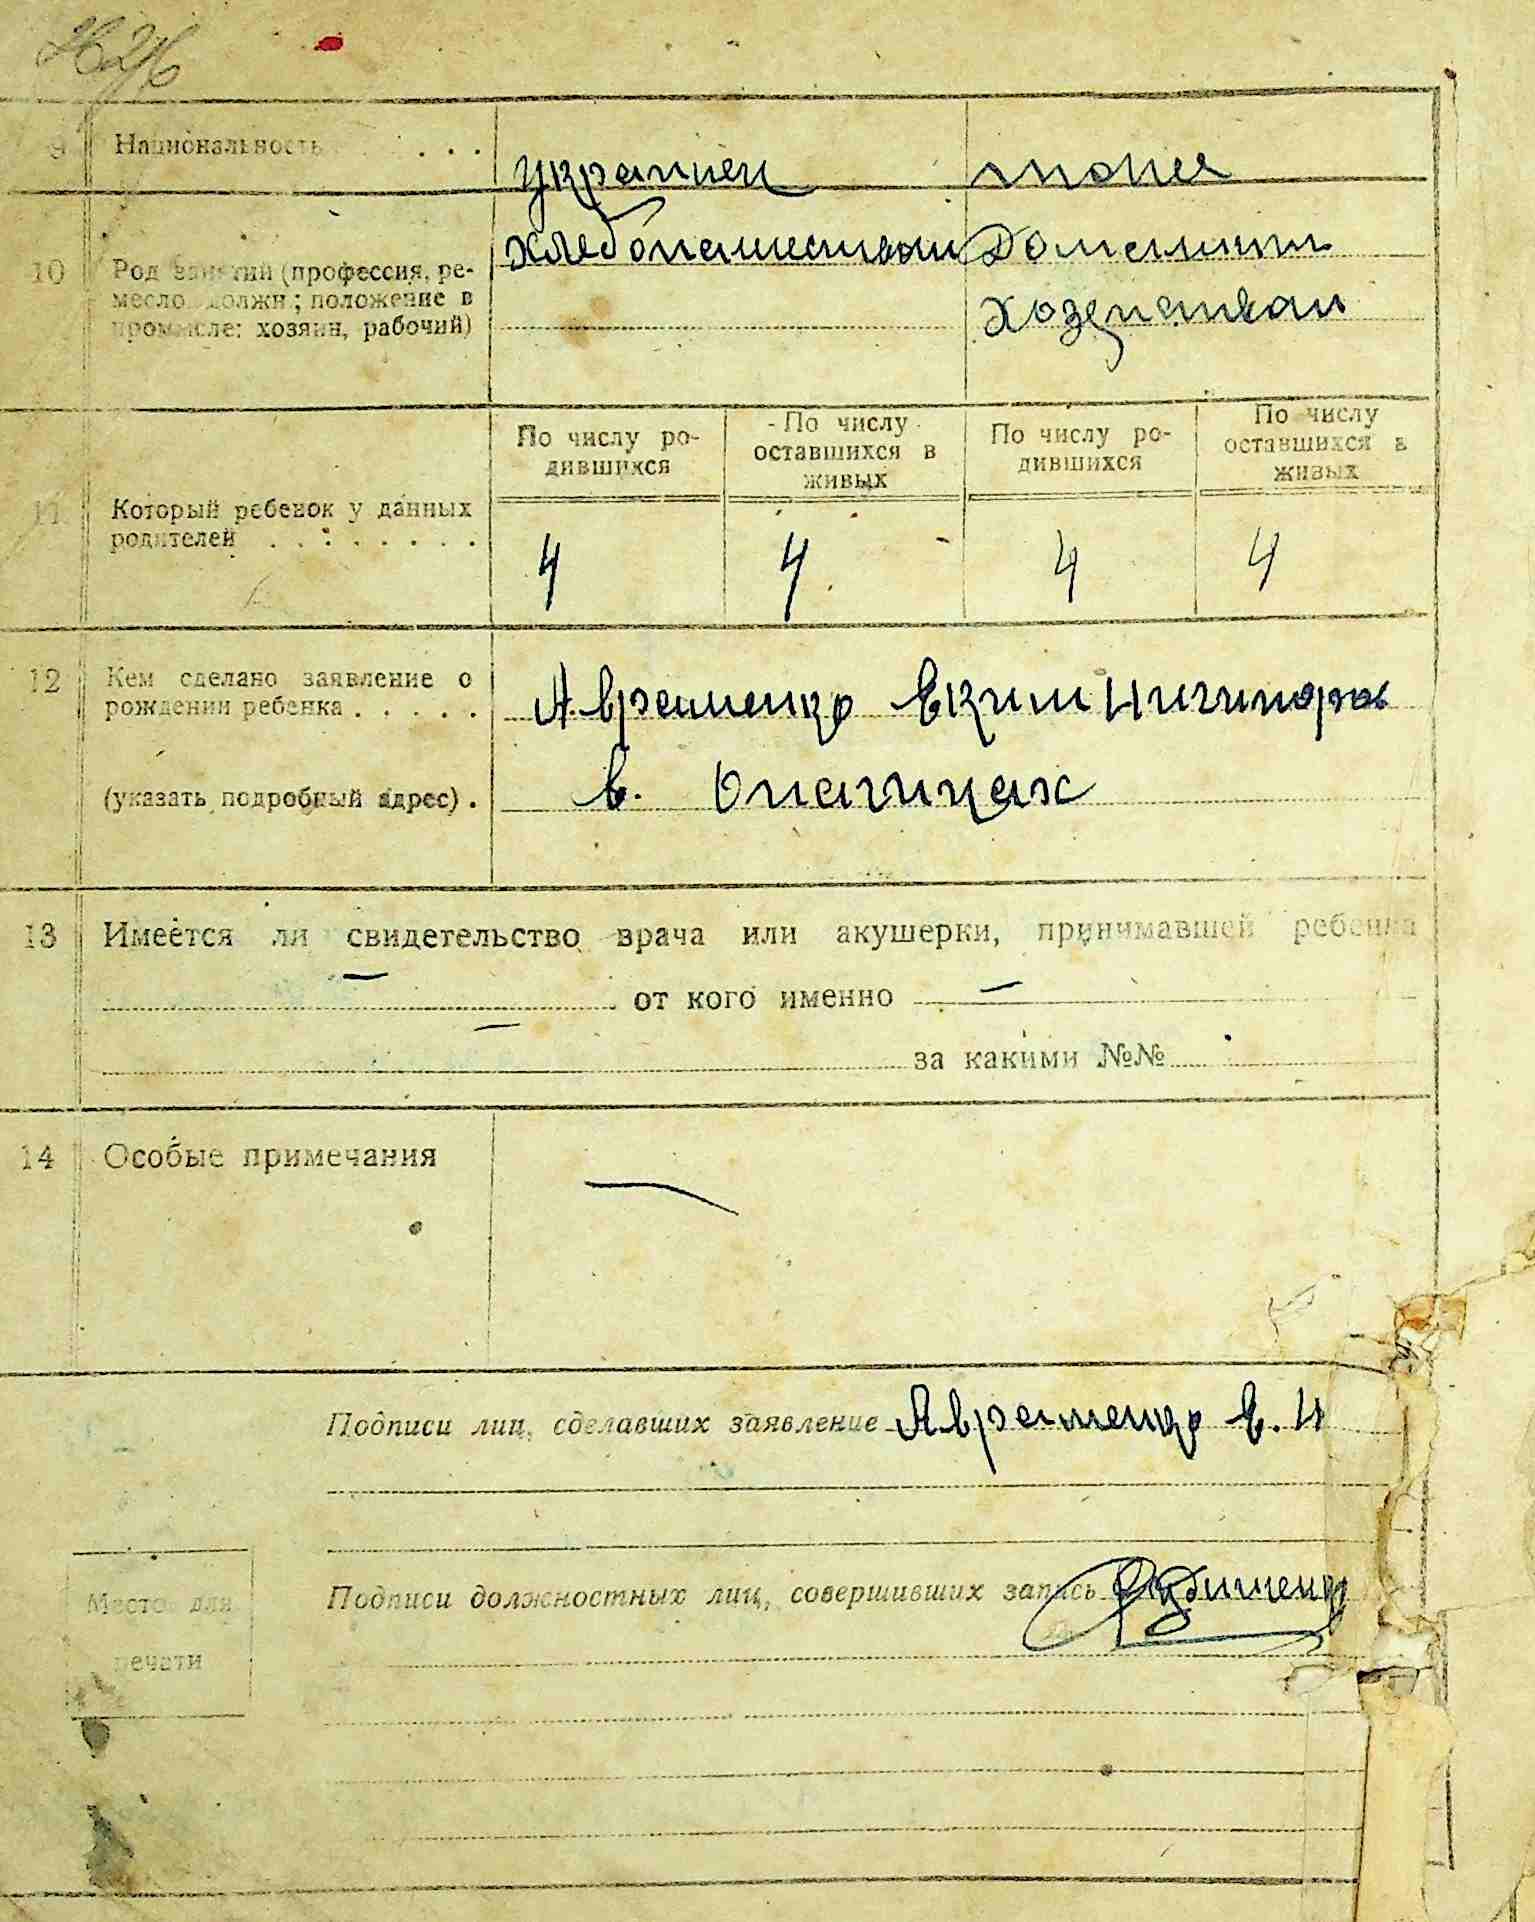 9 Национальность . . . украинец тоже
10 Род занятий (профессия, ре- хлебопашеством Домашним
месло должн; положение в
промысле: хозяин, рабочий) хозепством
По числу ро- По числу По числу ро- По числу
дившихся оставшихся в дившихся оставшихся в
живых живых
11 Который ребенок у данных
родителей . . . . . . . . 4 4 4 4
12 Кем сделано заявление о
рождении ребенка . . . . . Авраменко Еким
(указать подробный адрес) . в.
13 Имеется ли свидетельство врача или акушерки, принимавшей ребенка
— от кого именно —
— за какими №№
14 Особые примечания —
Подписи лиц, сделавших заявление Авраменко Е. Н
Подписи должностных лиц, совершивших запись
Место для
печати